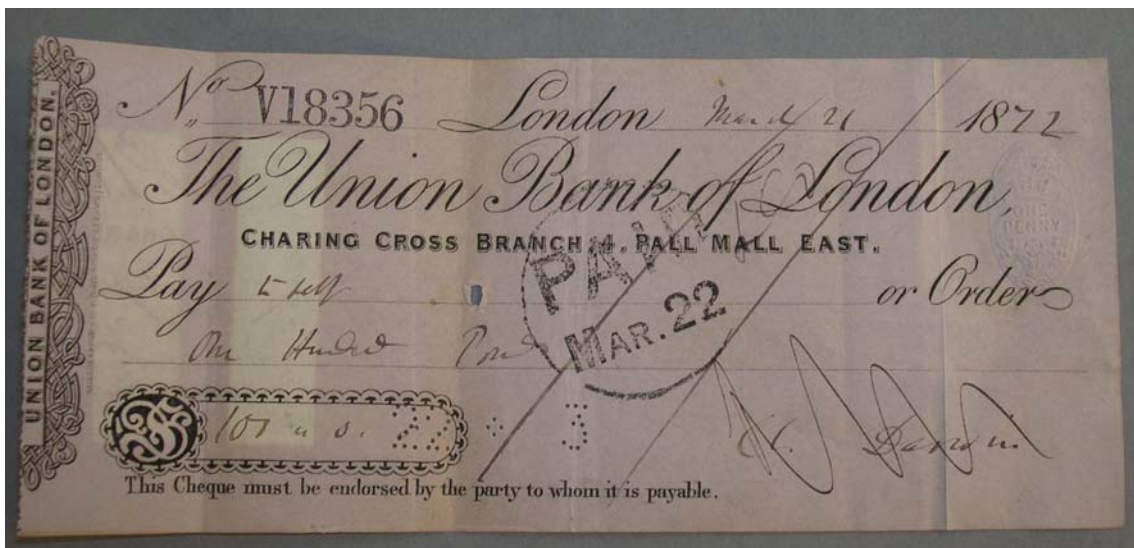 UNION BANK OF LONDON.
No. V18356 London March 21 1872
The Union Bank of London,
CHARING CROSS BRANCH, 4, PALL MALL EAST.
Pay to self or Order
One Hundred Pounds
PAID
MAR. 22
ONE
PENNY
100 " 0. 22 3
Ch. Darwin
This Cheque must be endorsed by the party to whom it is payable.